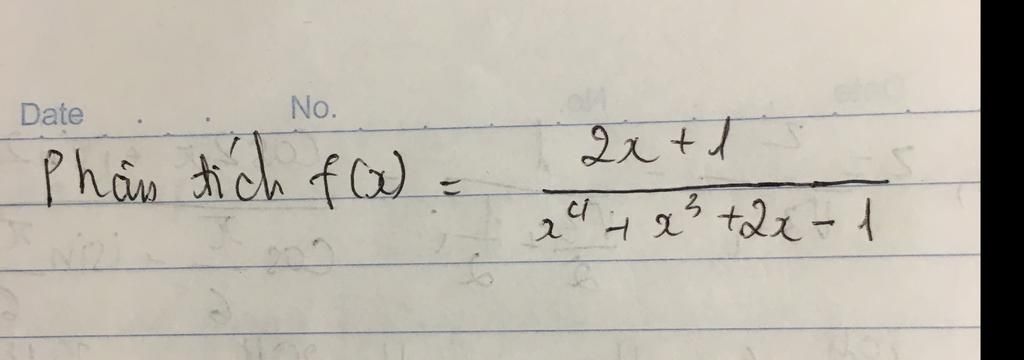 Date No.
Phân tích f(x) = \frac{2x + 1}{x^4 + x^3 + 2x - 1}